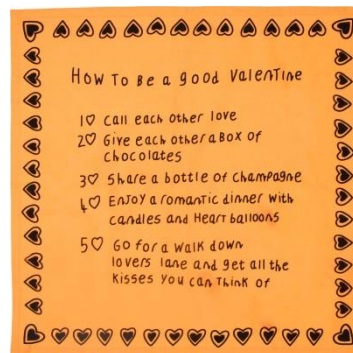 How To Be a good Valentine
1♡ Call each other love
2♡ Give each other a Box of
chocolates
3♡ Share a bottle of champagne
4♡ Enjoy a romantic dinner with
candles and Heart balloons
5♡ Go for a walk down
lovers lane and get all the
kisses you can think of